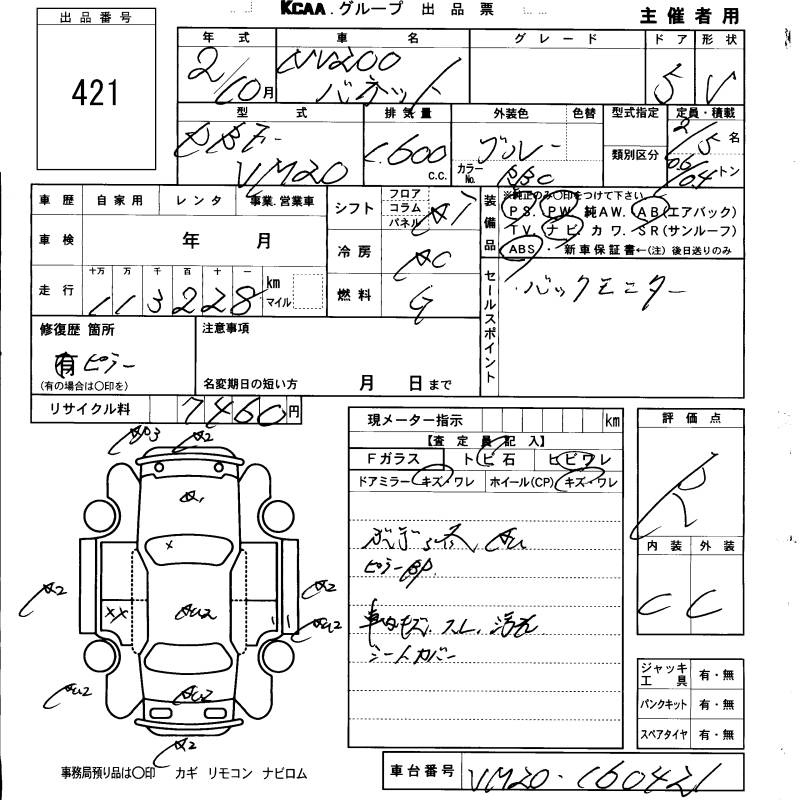 KCAA.グループ 出品票
主催者用
出品番号
421
年式 車名 グレード ドア 形状
2/10月 NV200 バネット 5 V
型式 排気量 外装色 色替 型式指定 定員・積載
類別区分
VM20 1.600 c.c. カラーNo. 2/5名
トン
車歴 自家用 レンタ 事業.営業車
シフト フロア コラム パネル AT
装備品
※純正のみ○印をつけて下さい
PS. PW 純AW. AB(エアバック)
TV. ナビ. カワ. SR(サンルーフ)
ABS ・ 新車保証書←(注) 後日送りのみ
車検 年 月
冷房 AC
走行 十万 万 千 百 十 一 km マイル
113228
燃料 G
セールスポイント
・バックモニター
修復歴 箇所
有 ピラー
(有の場合は○印を)
注意事項
名変期日の短い方 月 日まで
リサイクル料 7460円
現メーター指示 km
【査定員記入】
Fガラス トビ石 ヒビワレ
ドアミラー キズ・ワレ ホイール(CP) キズ・ワレ
ピラーBP.
車内キズ. スレ. 汚れ
シートカバー
評価点
R
内装 外装
C C
A2
A1
×
U2
A2
××
A2
ジャッキ工具 有・無
パンクキット 有・無
スペアタイヤ 有・無
事務局預り品は○印 カギ リモコン ナビロム
車台番号 VM20-160421